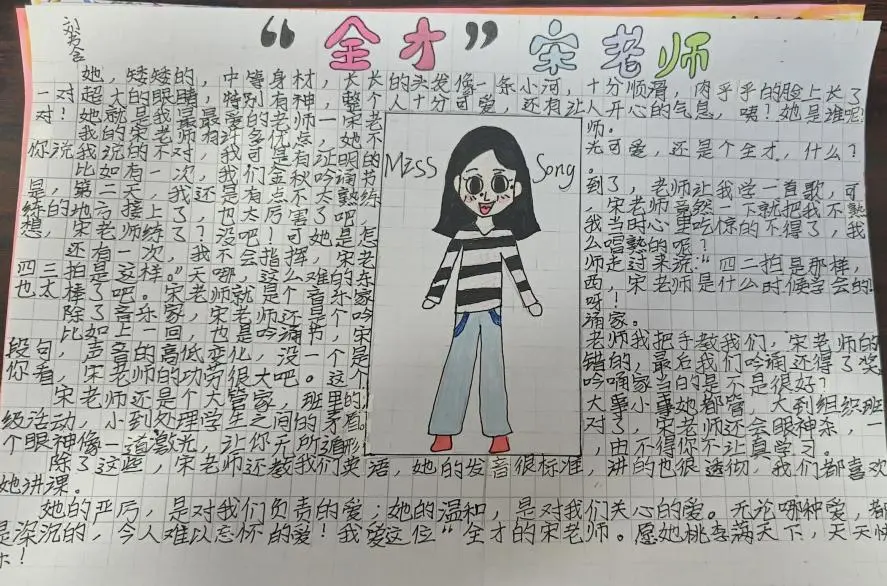 “全才”宋老师
她，矮矮的，中等身材，长长的头发像一条小河，十分顺滑，肉乎乎的脸上长了
一对超大的眼睛，特别有神，整个人十分可爱，还有让人开心的气息，咦？她是谁呢？
对！她就是我最最爱的老师—宋老师。
我的宋老师有许多优点，她不光可爱，还是个全才，什么？
你说我说的不对，我可是有证明的
比如有一次，我们金秋吟诵节到了，老师让我学一首歌，可
是，第二天，我还是有点不太熟练，宋老师竟然一下就把我不熟
练的地方接上了，也太厉害了吧，我当时心里吃惊的不得了，我
想，宋老师练了？没吧！可她是怎么唱熟的呢？
还有一次，我不会指挥，宋老师走过来说：“四二拍是那样，
四三拍是这样。”天哪，这么难的东西，宋老师是什么时候学会的！
也太棒了吧。宋老师就是个音乐家呀！
除了音乐家，宋老师还是个吟诵家。
比如上一回，也是吟诵节，宋老师我把手教我们，宋老师的
段句，声音的高低变化，没一个是错的，最后我们吟诵还得了奖
你看，宋老师的功劳很大吧。这个吟诵家当的是不是很好？
宋老师还是个大管家，班里的大事小事她都管，大到组织班
级活动，小到处理学生之间的矛盾。对了，宋老师还会眼神杀，一
个眼神像一道激光，让你无所遁形，由不得你不认真学习。
除了这些，宋老师还教我们英语，她的发音很标准，讲的也很透彻，我们都喜欢
她讲课。
她的严厉，是对我们负责的爱；她的温和，是对我们关心的爱。无论哪种爱，都
是深沉的，令人难以忘怀的爱！我爱这位“全才的宋老师。愿她桃李满天下，天天快
乐！
Miss Song